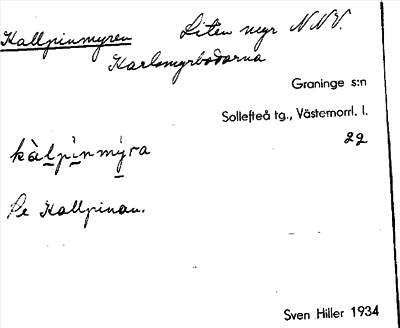 Kallpinmyren Liten myr NNV.
Karlsmyrbodarna
Graninge s:n
Sollefteå tg., Västernorrl. l.
22
kàlpìnmy̌ra
Se Kallpinan.
Sven Hiller 1934